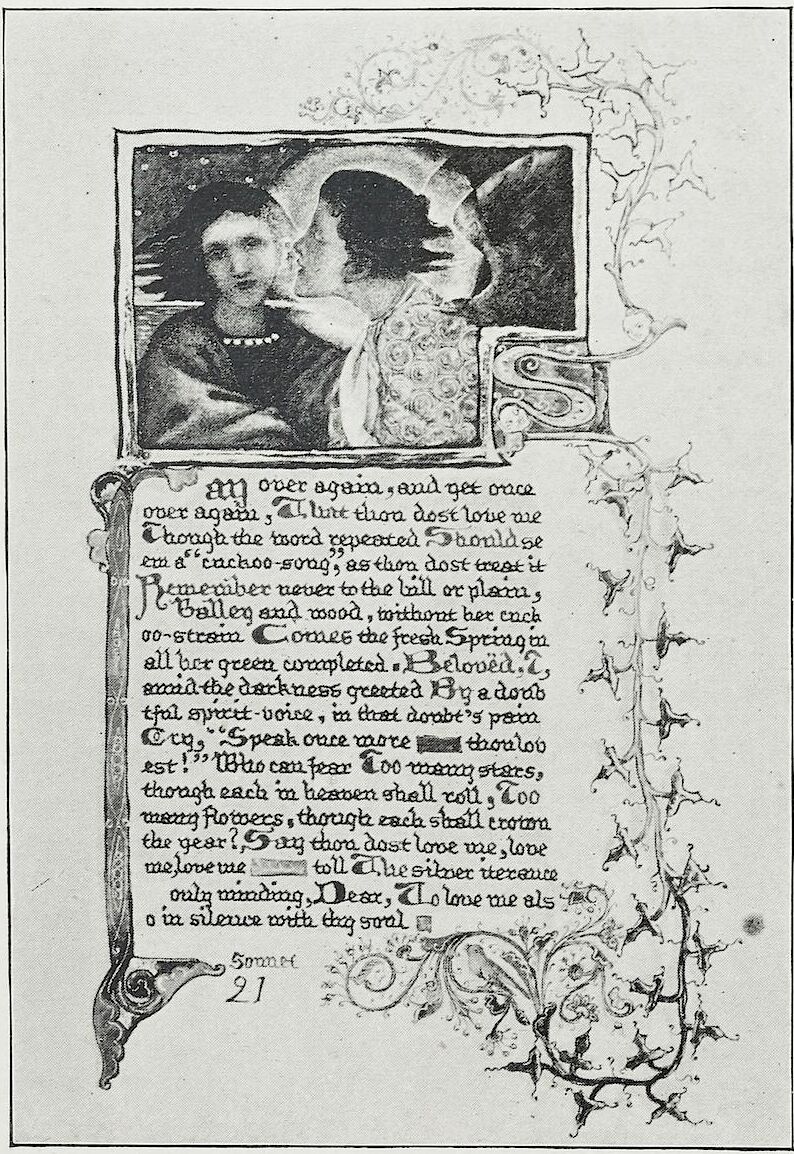 S
ay over again, and yet once
over again, That thou dost love me
Though the word repeated Should se
em a "cuckoo-song," as thou dost treat it
Remember never to the hill or plain,
Valley and wood, without her cuck
oo-strain Comes the fresh Spring in
all her green completed. Belovëd, I,
amid the darkness greeted By a doub
tful spirit-voice, in that doubt's pain
Cry, "Speak once more thou lov
est!" Who can fear Too many stars,
though each in heaven shall roll, Too
many flowers, though each shall crown
the year?, Say thou dost love me, love
me, love me toll The silver iterance
only minding, Dear, To love me als
o in silence with thy soul
Sonnet
21